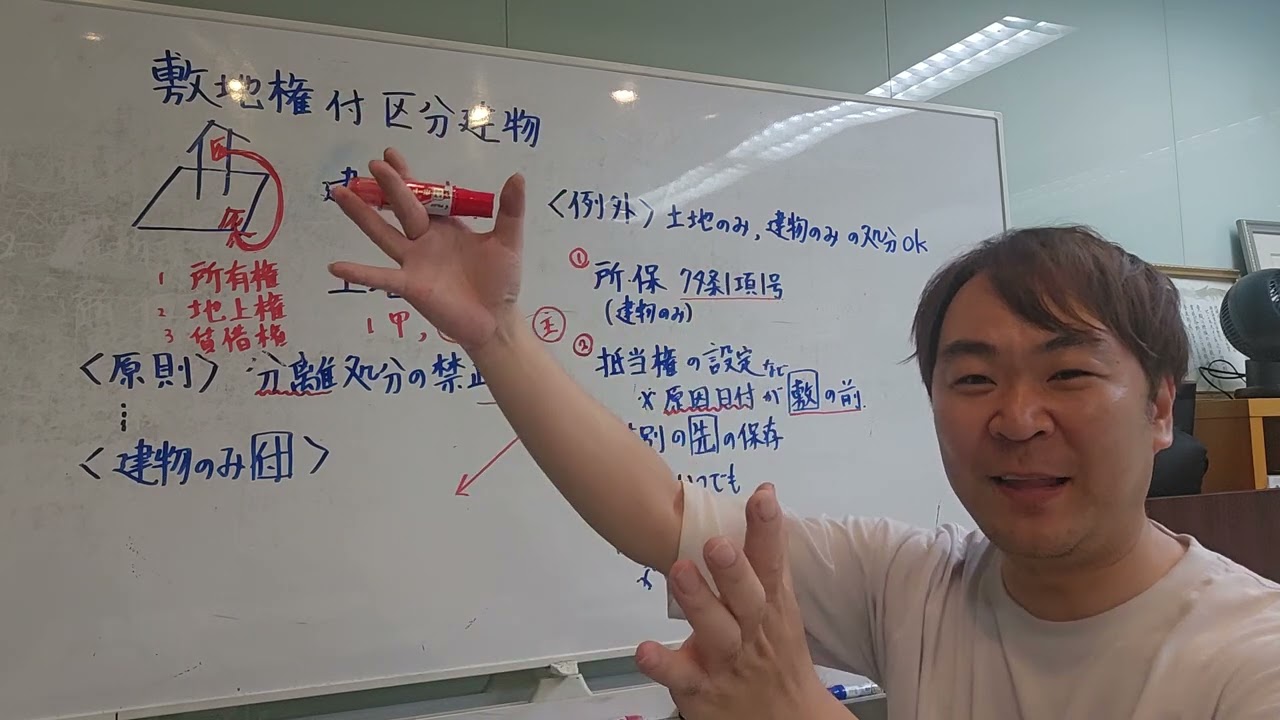 敷地権付区分建物
建
1 所有権
2 地上権
3 賃借権
1 甲,
主
〈原則〉 分離処分の禁止
〈建物のみ付〉
〈例外〉土地のみ,建物のみの処分OK
① 所.保 74条1項1号
(建物のみ)
② 抵当権の設定など
※ 原因日付が敷の前
別の先の保存
いつでも